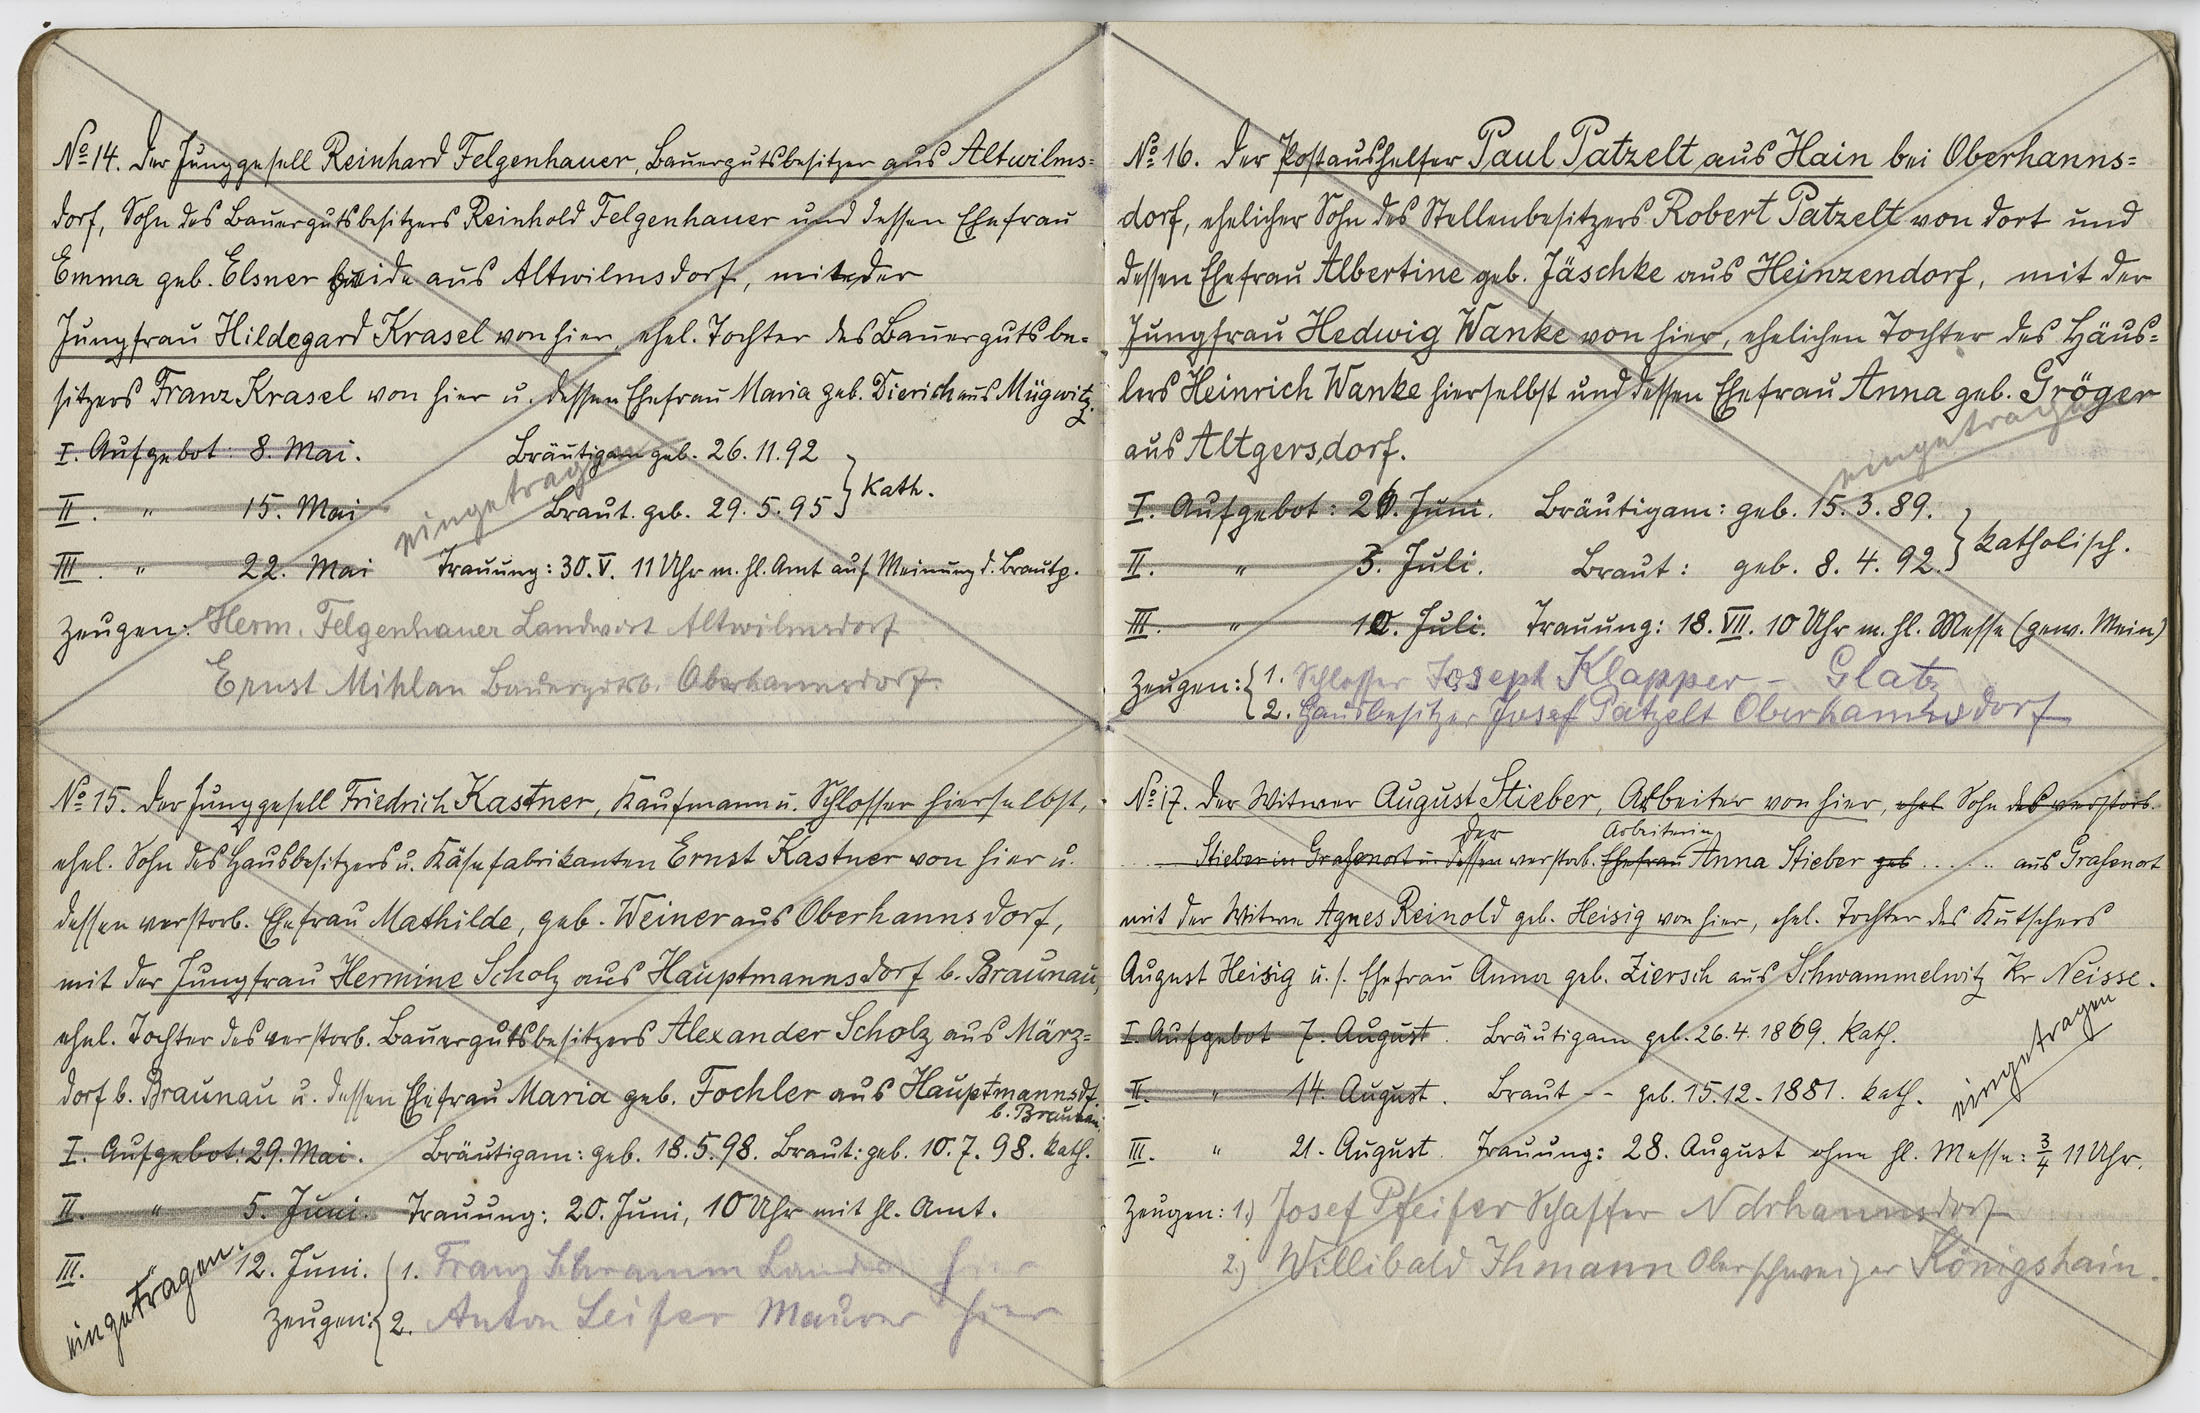 No 14. Der Junggesell Reinhard Felgenhauer, Bauergutsbesitzer aus Altwilms=
dorf, Sohn des Bauergutsbesitzers Reinhold Felgenhauer und dessen Ehefrau
Emma geb. Elsner beide aus Altwilmsdorf, mit der
Jungfrau Hildegard Krasel von hier, ehel. Tochter des Bauergutsbe-
sitzers Franz Krasel von hier u. dessen Ehefrau Maria geb. Dierich aus Mügwitz.
I. Aufgebot: 8. Mai. Bräutigam geb. 26.11.92
kath.
II. " 15. Mai Braut. geb. 29.5.95
eingetragen
III. " 22. Mai Trauung: 30.V. 11 Uhr m. hl. Amt auf Meinung d. Brautp.
Zeugen: Herm. Felgenhauer Landwirt Altwilmsdorf
Ernst Mihlan Oberhannsdorf.
No 15. Der Junggesell Friedrich Kastner, Kaufmann u. Schlosser hierselbst,
ehel. Sohn des Hausbesitzers u. Käsefabrikanten Ernst Kastner von hier u.
dessen verstorb. Ehefrau Mathilde, geb. Weiner aus Oberhannsdorf,
mit der Jungfrau Hermine Scholz aus Hauptmannsdorf b. Braunau,
ehel. Tochter des verstorb. Bauergutsbesitzers Alexander Scholz aus März=
dorf b. Braunau u. dessen Ehefrau Maria geb. Fochler aus Hauptmannsdf.
b. Braunau.
I. Aufgebot: 29. Mai. Bräutigam: geb. 18.5.98. Braut: geb. 10.7.98. kath.
II. " 5. Juni. Trauung: 20. Juni, 10 Uhr mit hl. Amt.
III. " 12. Juni. 1. Franz Schramm hier
eingetragen.
Zeugen: 2. Anton Leifer Maurer hier
No 16. Der Postaushelfer Paul Patzelt aus Hain bei Oberhanns=
dorf, ehelicher Sohn des Stellenbesitzers Robert Patzelt von dort und
dessen Ehefrau Albertine geb. Jäschke aus Heinzendorf, mit der
Jungfrau Hedwig Wanke von hier, ehelichen Tochter des Häus=
lers Heinrich Wanke hierselbst und dessen Ehefrau Anna geb. Gröger
aus Altgersdorf.
eingetragen
I. Aufgebot: 26. Juni. Bräutigam: geb. 15.3.89.
katholisch.
II. " 3. Juli. Braut: geb. 8.4.92.
III. " 10. Juli. Trauung: 18.VII. 10 Uhr m. hl. Messe (gew. Mein)
Zeugen: 1. Schlosser Joseph Klapper - Glatz
2. Hausbesitzer Josef Patzelt Oberhannsdorf
No 17. Der Witwer August Stieber, Arbeiter von hier, ehel. Sohn des verstorb.
der Arbeiterin
Stieber in Grafenort u. dessen verstorb. Ehefrau Anna Stieber geb ...... aus Grafenort
mit der Witwe Agnes Reinold geb. Heisig von hier, ehel. Tochter des Kutschers
August Heisig u. s. Ehefrau Anna geb. Ziersch aus Schwammelwitz Kr Neisse.
I. Aufgebot 7. August. Bräutigam geb. 26.4.1869. kath.
II. " 14. August. Braut -- geb. 15.12.1881. kath.
eingetragen
III. " 21. August. Trauung: 28. August ohne hl. Messe: 3/4 11 Uhr.
Zeugen: 1.) Josef Pfeifer Schaffer Ndrhannsdorf
2.) Willibald Ihmann Oberschweizer Königshain.